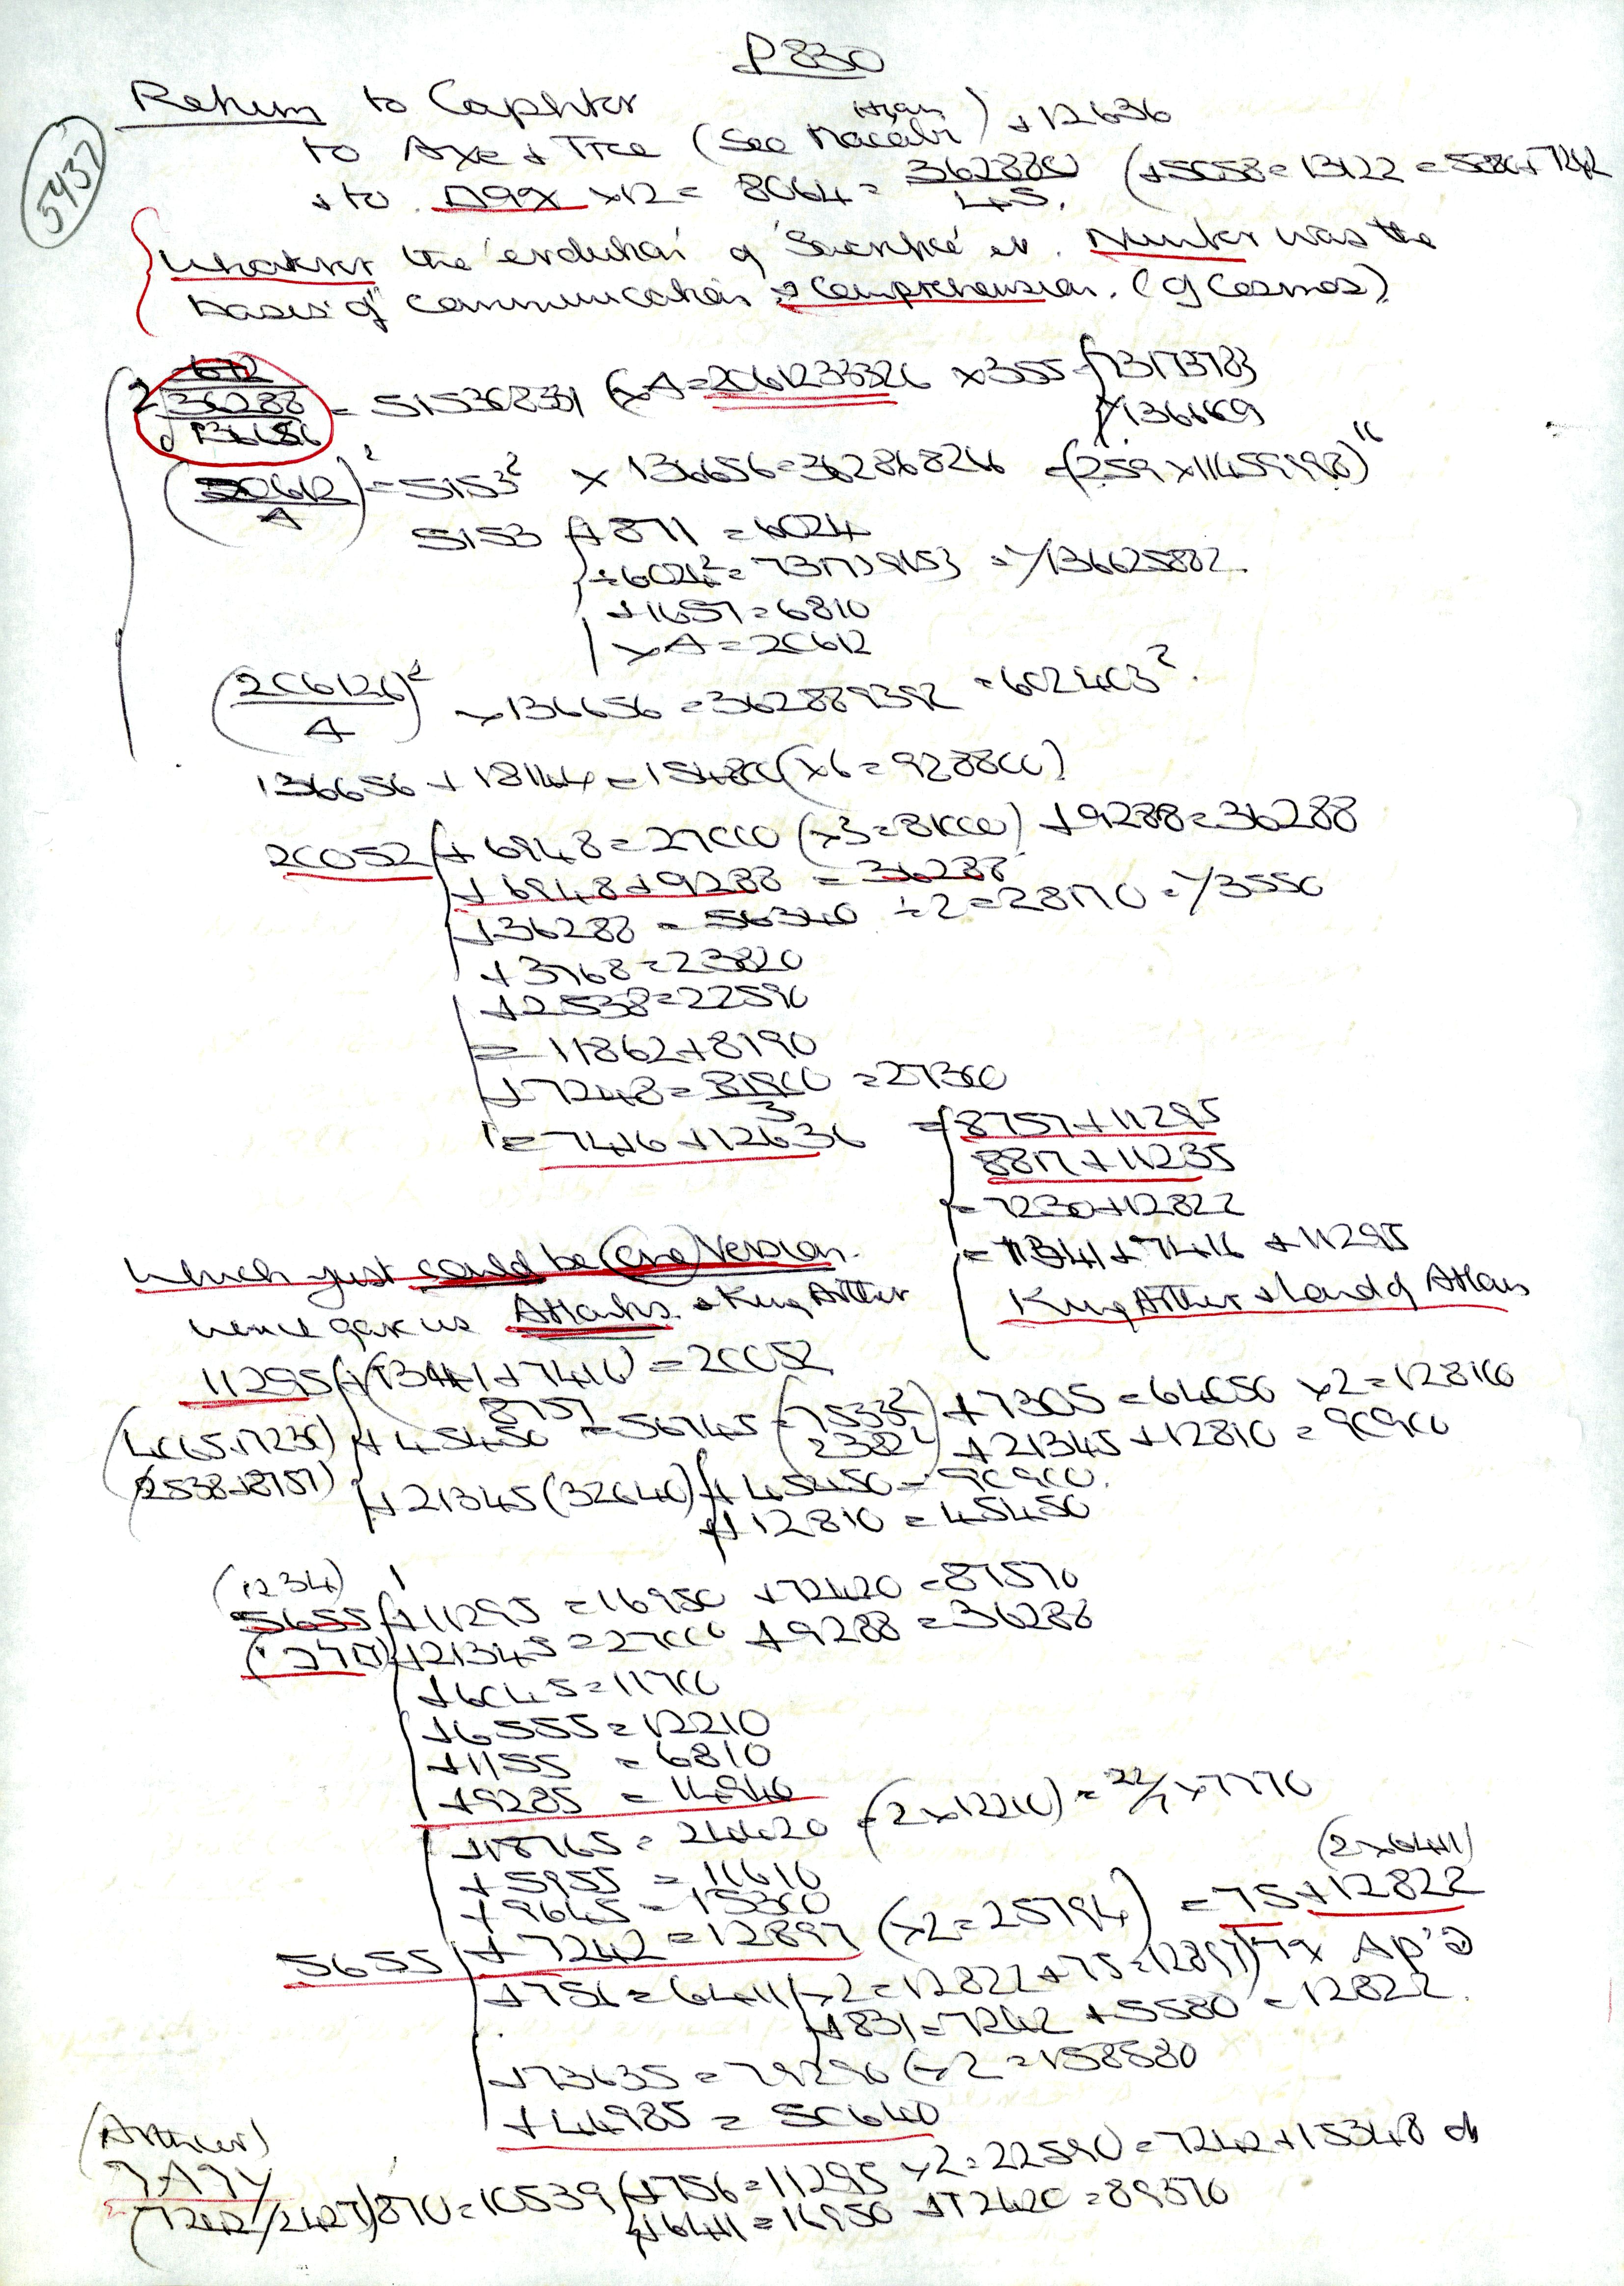 P830
5437
Return to Caphtor + 12636
to Axe + Tree (See
+ to x12 = 8064 = 362880 / 45. (+5058 = 13122 = 5880 + 7242
Whatever the 'evolution' of 'Science' etc. Number was the
basis of communication → Comprehension. (of Cosmos)
36288 / 136656 = 515368331 (x 4 = 2061233326 x 355 = 73173783
1/136669
(20612 / 4)² = 5153² x 136656 = 362868266 = (259 x 11459998)
5153 + 871 = 6024
÷ 6024² = 731739153 = 1/136625882.
+ 1657 = 6810
x 4 = 20612
(206126 / 4)² x 136656 = 362889392 = 602403².
136656 + 18144 = 154800 (x6 = 928800)
20052 + 6948 = 27000 (x3 = 81000) + 9288 = 36288
+ 6948 + 9288 = 36288
+ 36288 = 56340 ÷ 2 = 28170 = 1/3550
+ 3768 = 23820
+ 2538 = 22590
= 11862 + 8190
+ 7248 = 81900 / 3 = 27300
= 7416 + 12636
= 8757 + 11295
8817 + 11235
= 7230 + 12822
= 1341 + 7416 + 11295
King Arthur + Land of Atlas
Which just could be (one) version.
hence gave us Atlantis + King Arthur
11295 + (1341 + 7416) = 20052
8757
(4065 + 7230) + 45450 = 56745 (7533²) + 7305 = 64050 x 2 = 128100
(2538 + 8757) (2382²) + 21345 + 12810 = 90900
+ 21345 (32640) + 45450 = 90900.
+ 12810 = 45450
(1234)
5655 + 11295 = 16950 + 72420 = 89370
+ 21345 = 27000 + 9288 = 36288
+ 6045 = 11700
+ 6555 = 12210
+ 1155 = 6810
+ 9285 = 14940
+ 18765 = 24420 = (2 x 12210) = 22/7 x 7770
+ 5955 = 11610
+ 9645 = 15300
(2 x 6411)
5655 + 7242 = 12897 (x2 = 25794) = 75 + 12822
+ 756 = 6411 (x2 = 12822 + 75 = 12897)
+ 831 = 7242 + 5580 = 12822.
+ 73635 = 79290 (x2 = 158580
+ 44985 = 50640
(Arthur)
(7242/2427) 870 = 10539 + 756 = 11295 x 2 = 22590 = 7242 + 15348
+ 6411 = 16950 + 72420 = 89370